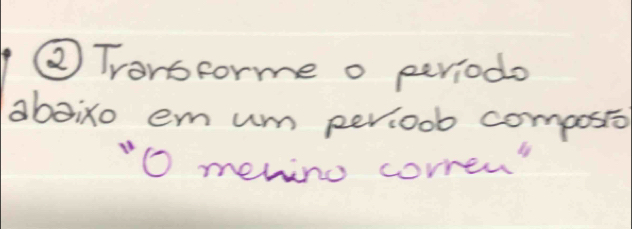 ② Transforme o período
abaixo em um período composto
"O menino correu"